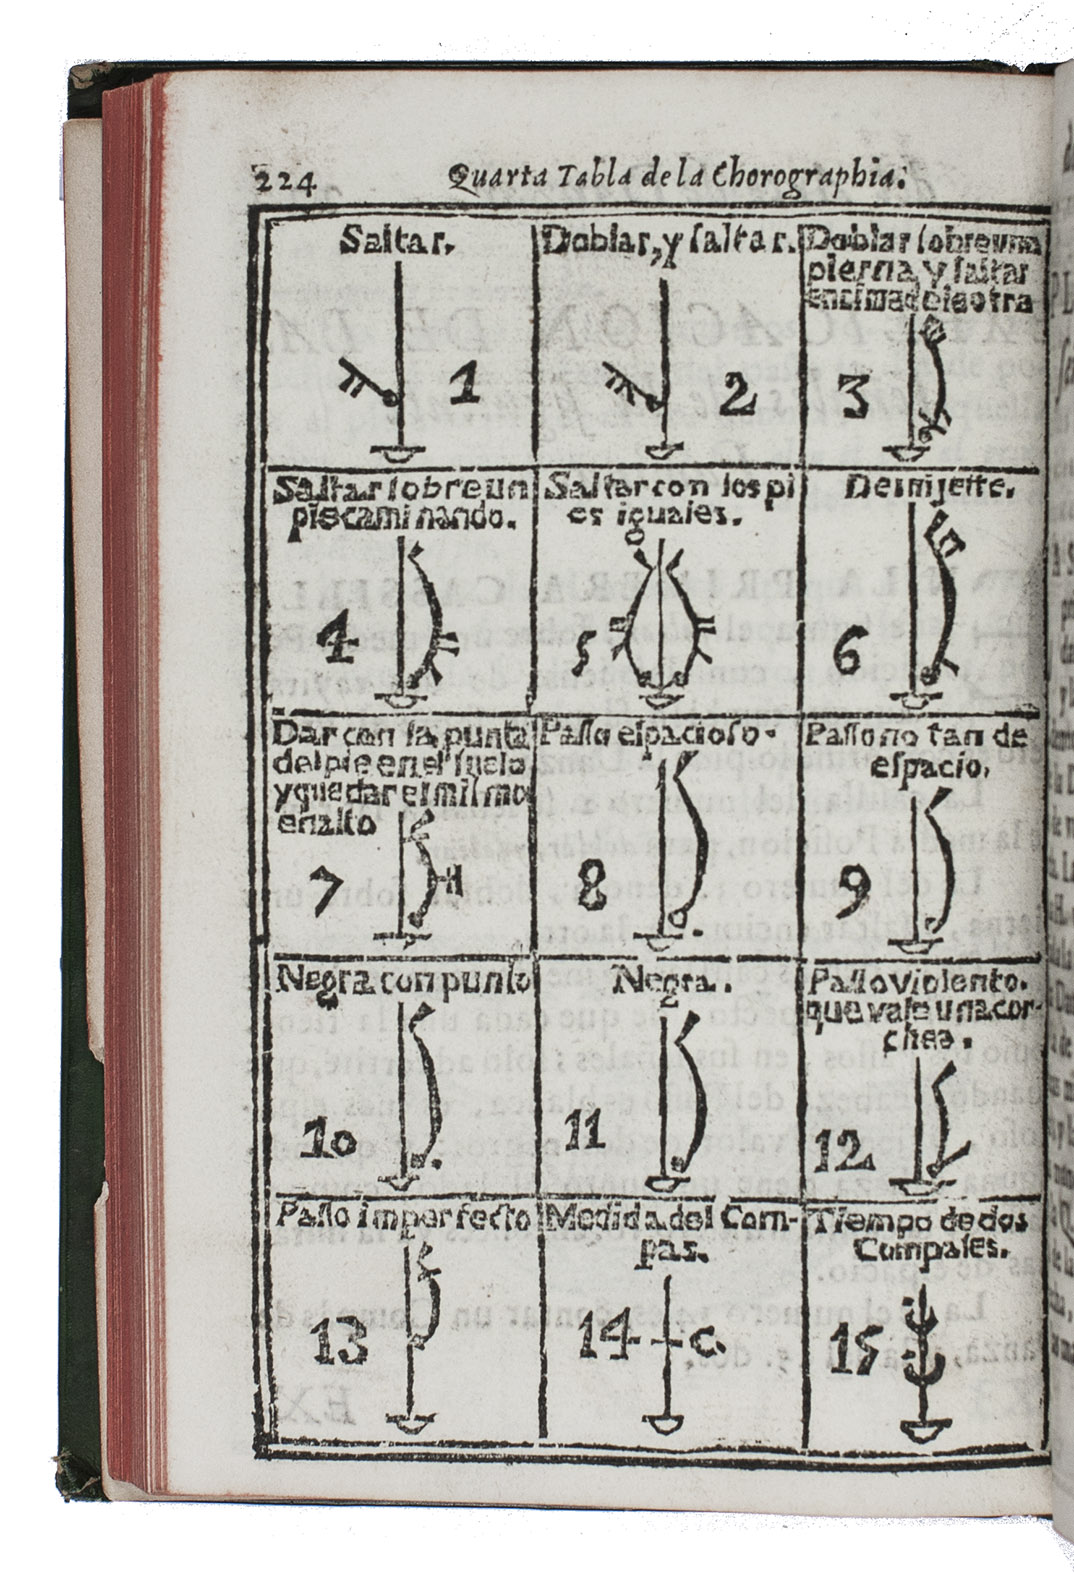 224 Quarta Tabla de la Chorographia.
Saltar.
1
Doblar, y saltar.
2
Doblar sobre una
pierna, y saltar
encima de la otra
3
Saltar sobre un
pie caminando.
4
Saltar con los pi
es iguales.
5
6
Dar con la punta
del pie en el suelo
y quedar el mismo
en alto
7
Passo espacioso.
8
Passo no tan de
espacio.
9
Negra con punto
10
Negra.
11
Passo violento.
que vale una cor-
chea.
12
Passo imperfecto
13
Medida del Com-
pas.
14
Tiempo de dos
Compases.
15